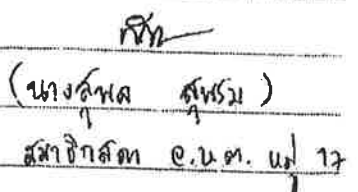 (นางสุพล สุพรม)
สมาชิกสภา อ.บ.ต. หมู่ 17